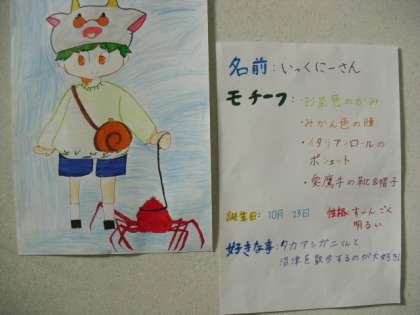 名前：いっくにーさん
モチーフ：・お茶色のかみ
・みかん色の瞳
・イタリアンロールの
ポシェット
・愛鷹牛の靴&帽子
誕生日：10月23日 性格：すーんごく
明るい
好きな事：タカアシガニくんと
沼津を散歩するのが大好き！